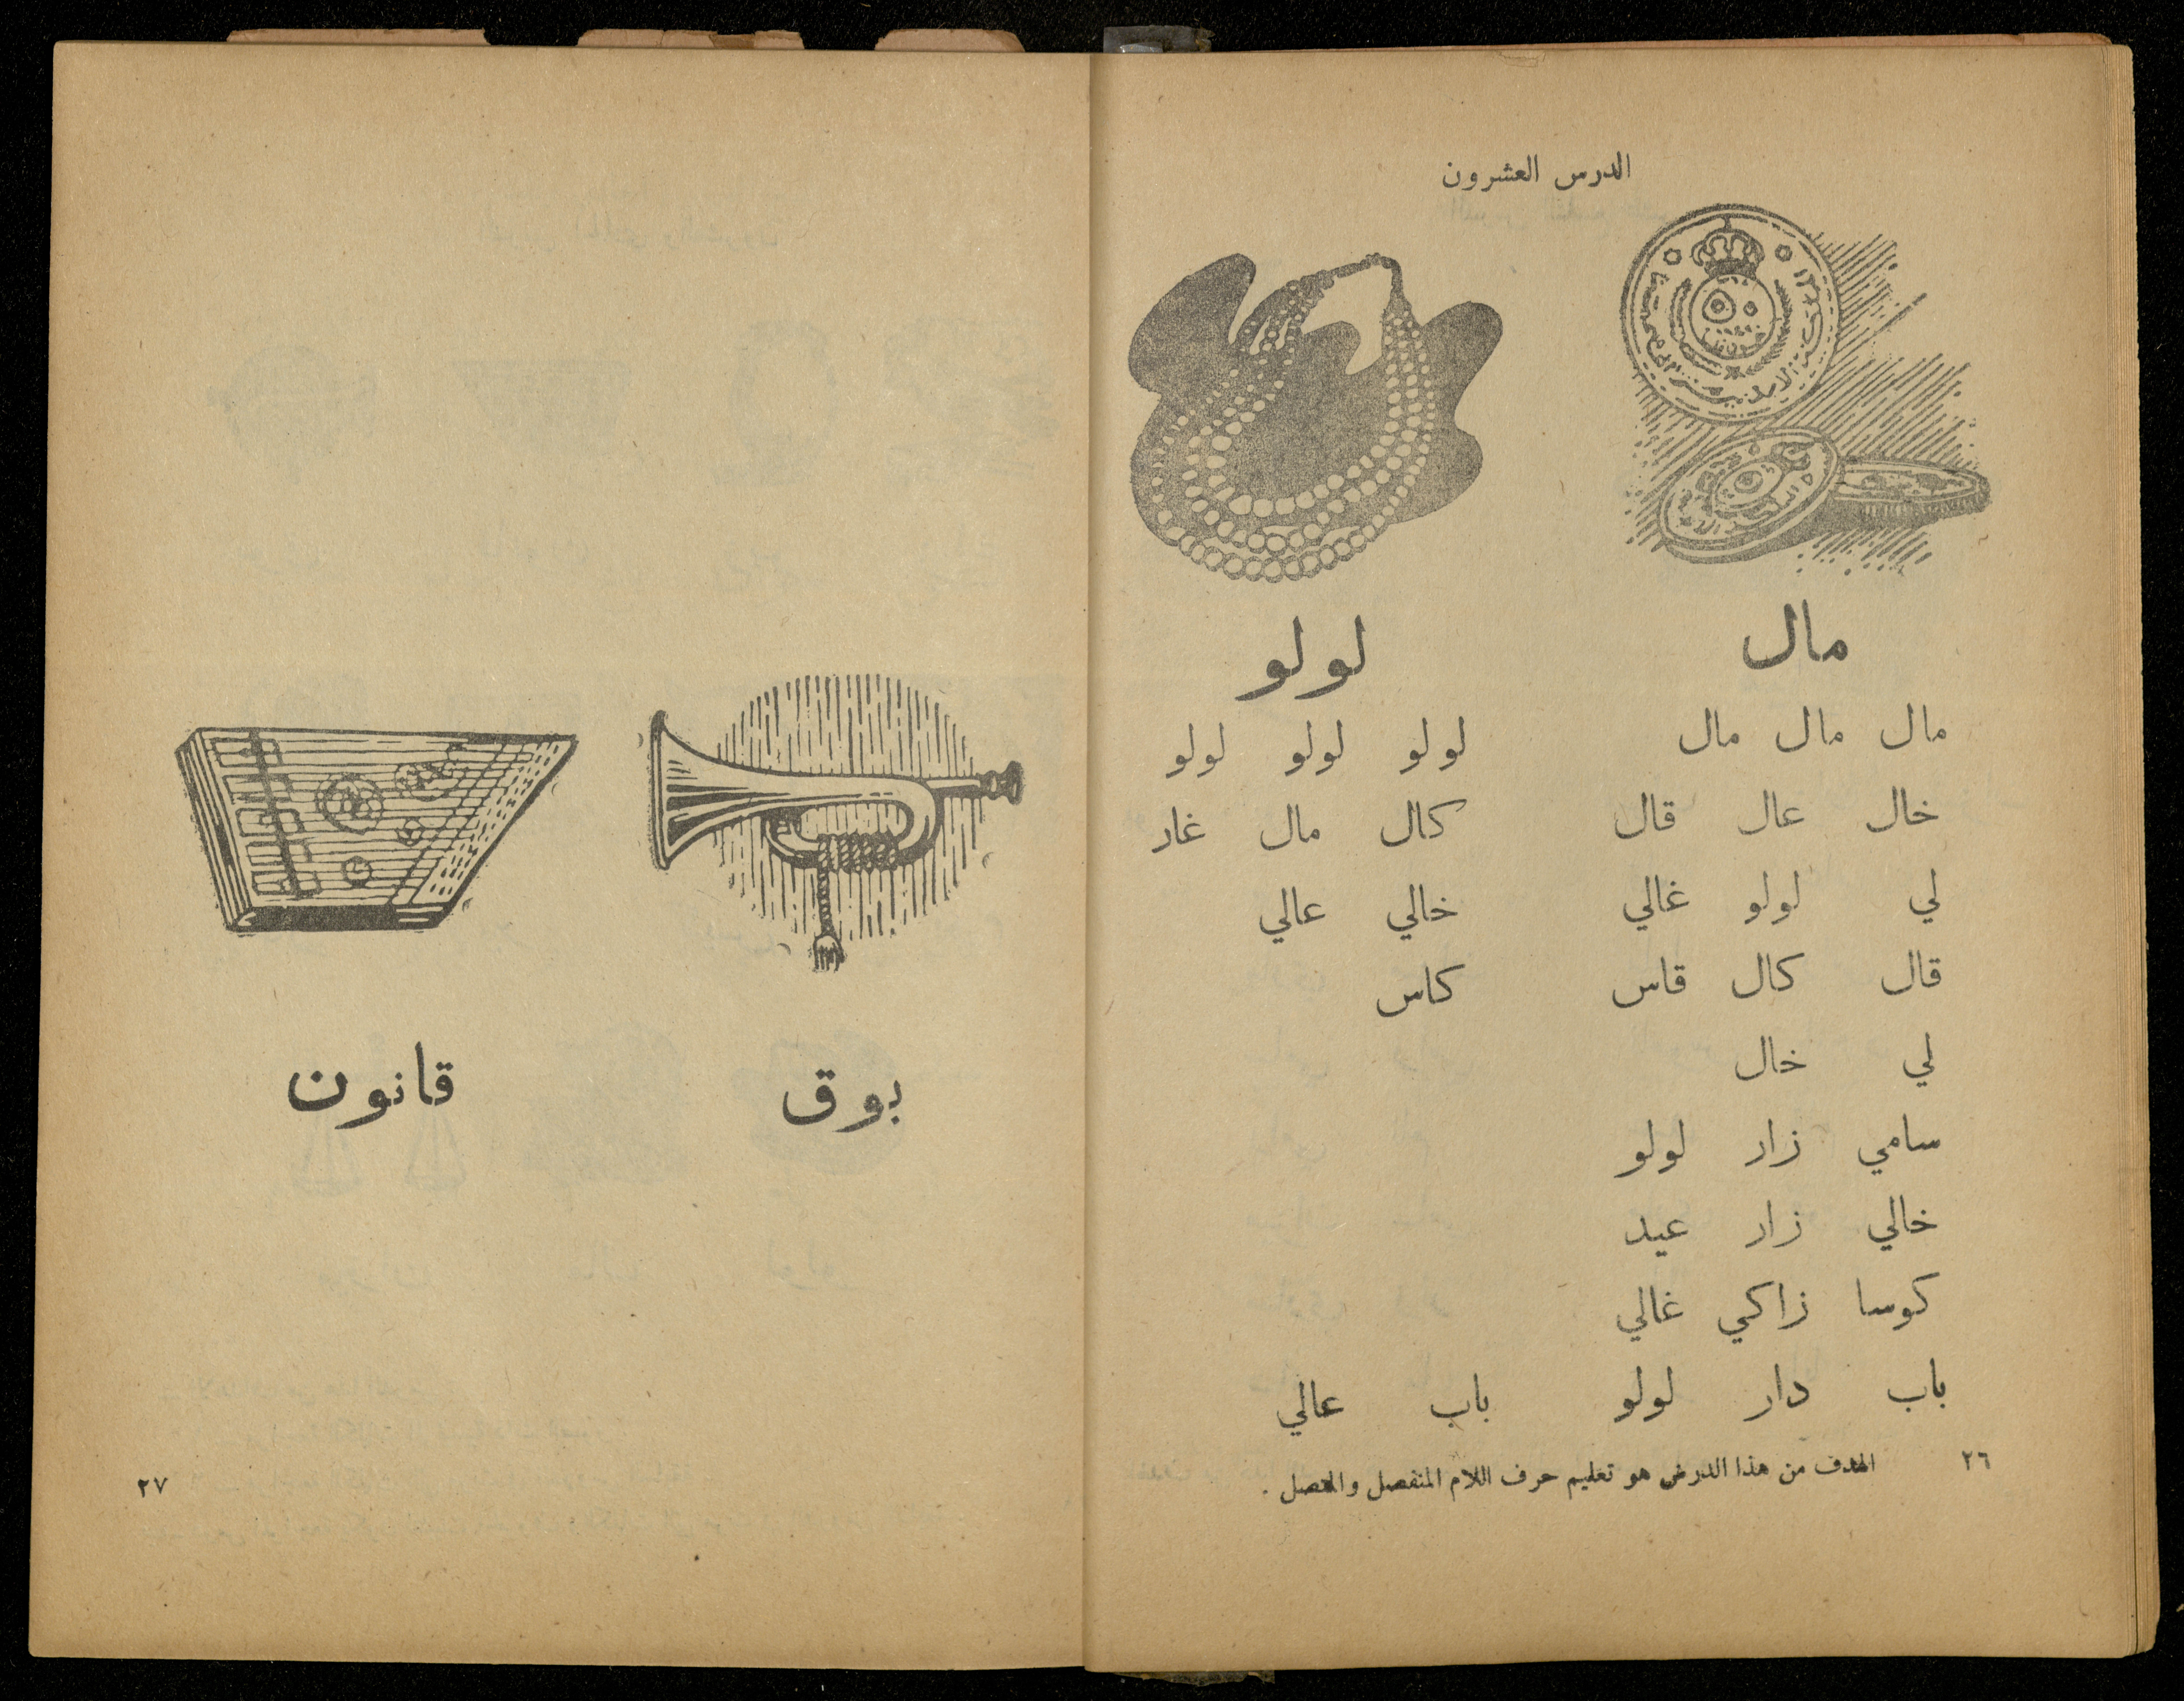 الدرس العشرون
مال
لولو
مال مال مال
لولو لولو لولو
خال عال قال
كال مال غار
لي لولو غالي
خالي عالي
قال كال قاس
كاس
لي خال
سامي زار لولو
خالي زار عيد
كوسا زاكي غالي
باب دار لولو باب عالي
الهدف من هذا الدرس هو تعليم حرف اللام المنفصل والمتصل .
٢٦
بوق
قانون
٢٧